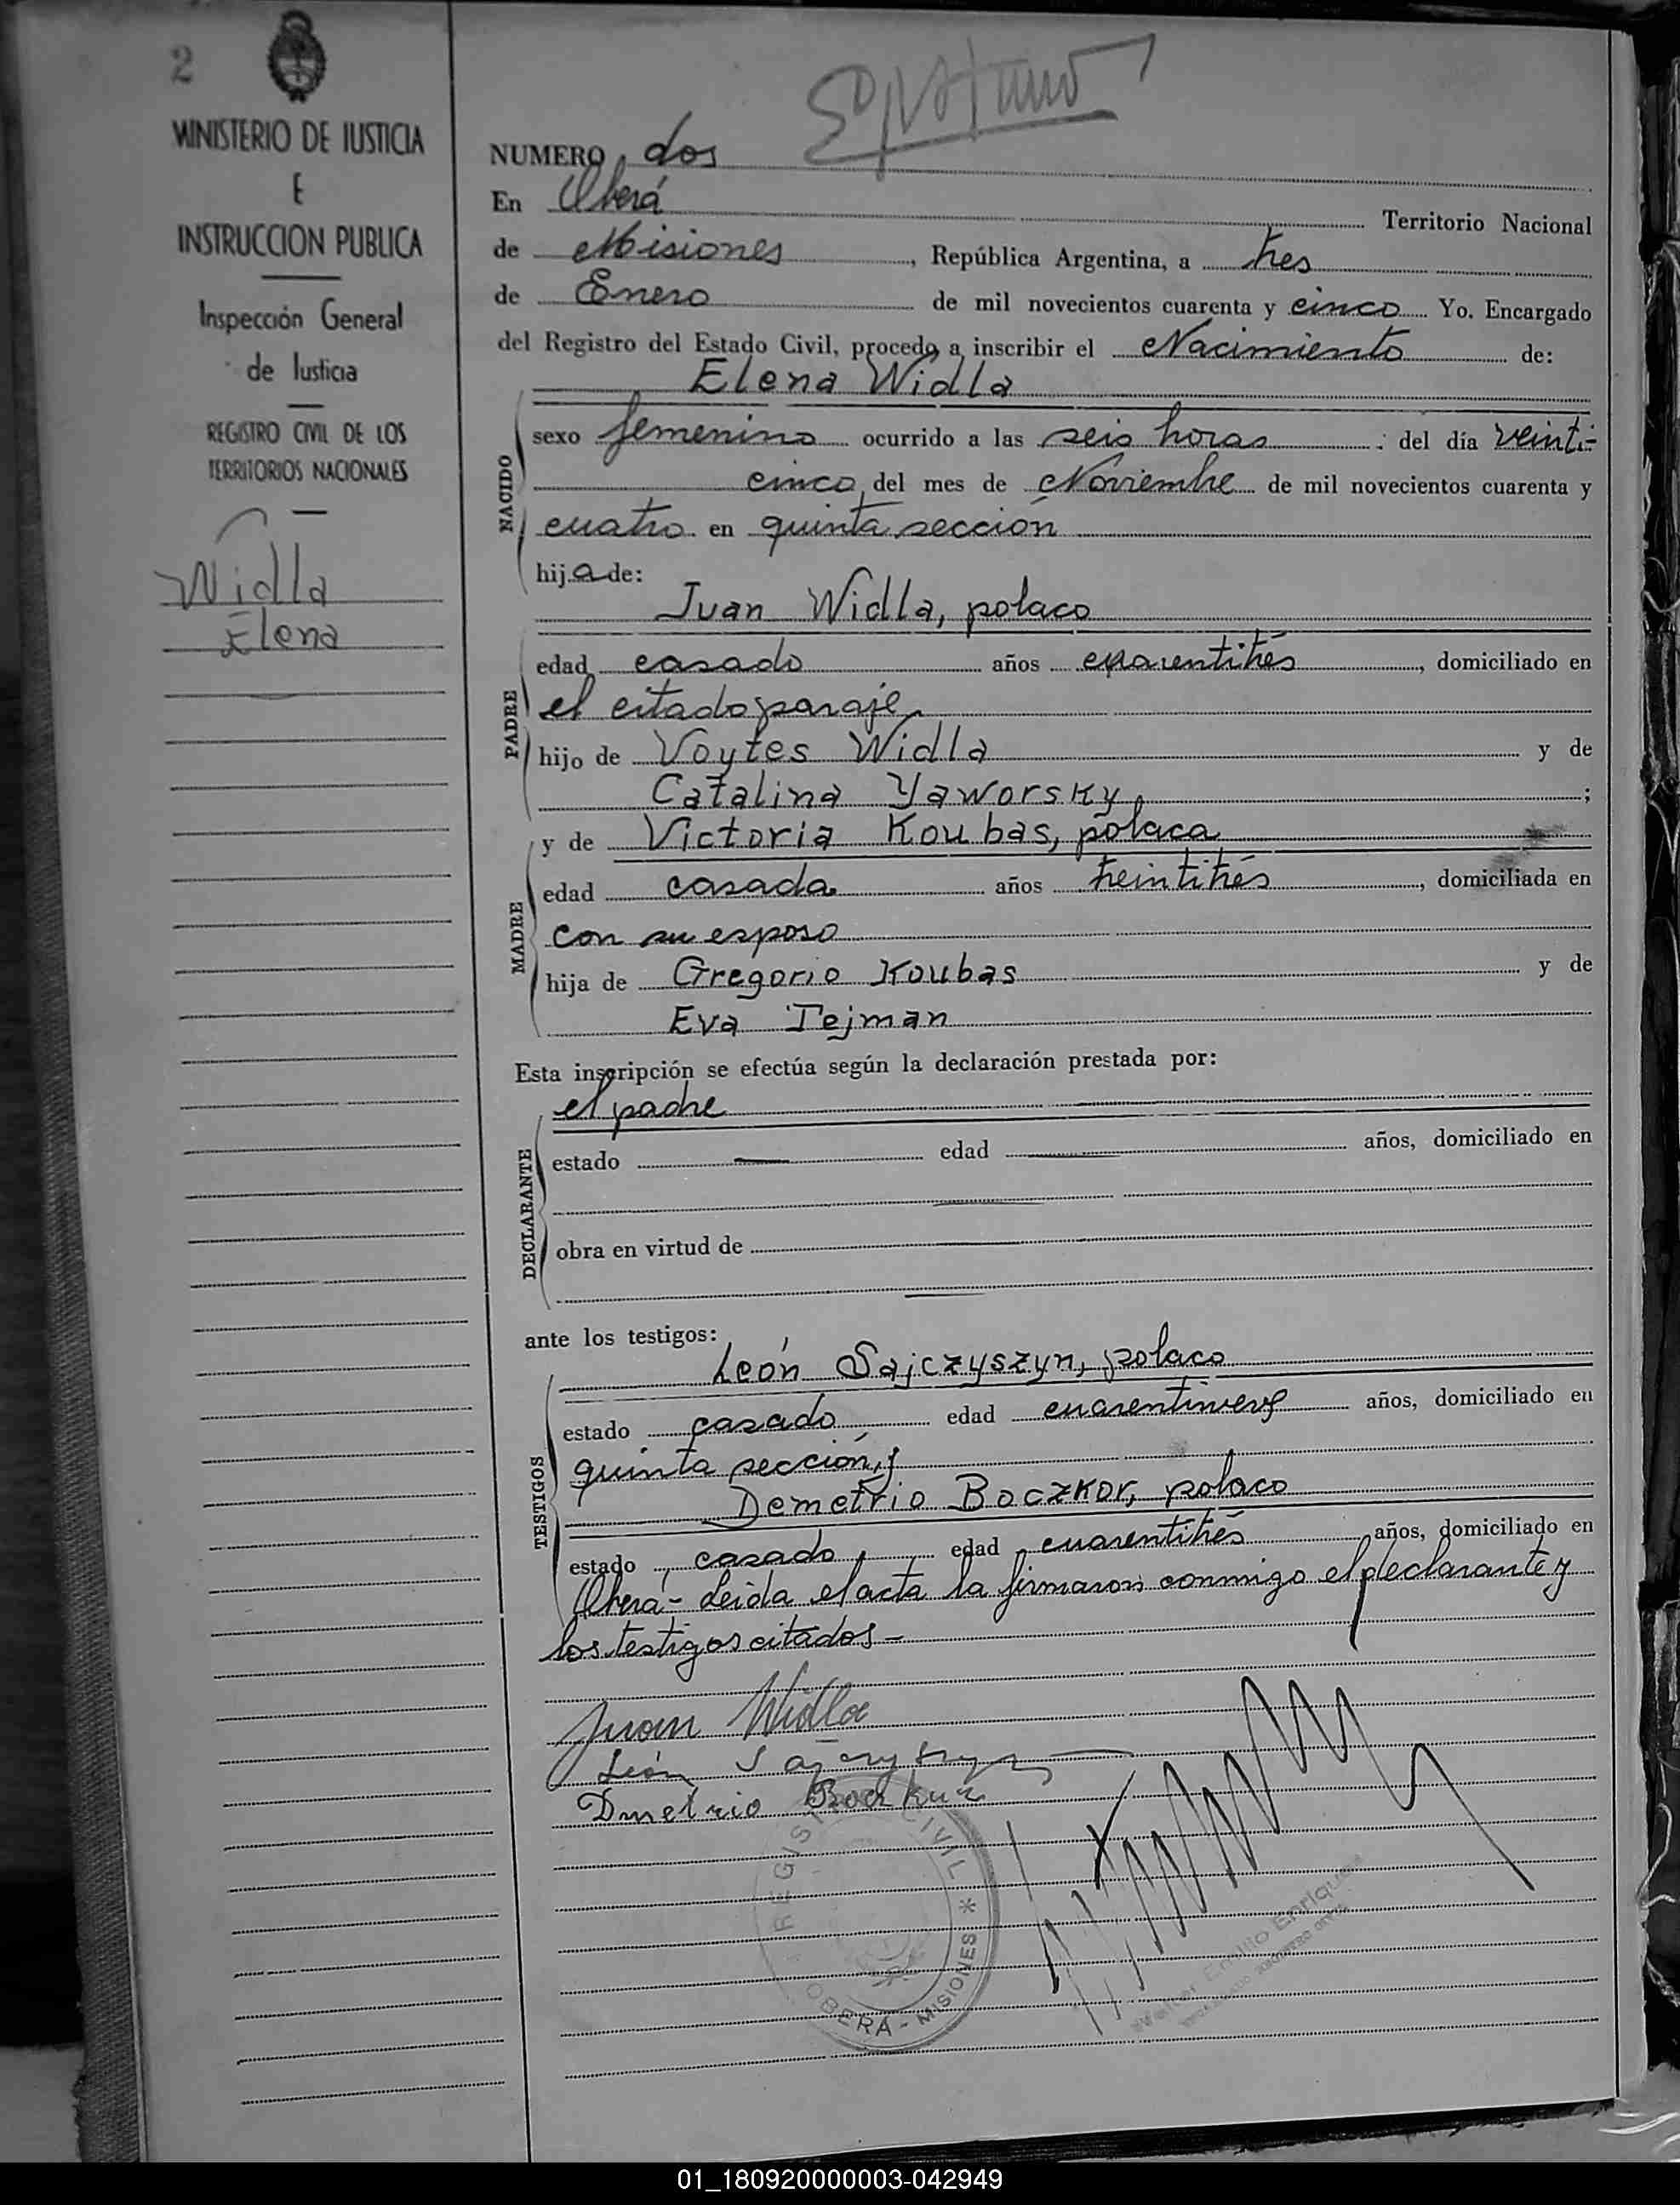 2
MINISTERIO DE JUSTICIA
E
INSTRUCCION PUBLICA
Inspección General
de Justicia
REGISTRO CIVIL DE LOS
TERRITORIOS NACIONALES
Widla
Elena
NUMERO dos
En Oberá Territorio Nacional
de Misiones, República Argentina, a tres
de Enero de mil novecientos cuarenta y cinco Yo. Encargado
del Registro del Estado Civil, procedo a inscribir el Nacimiento de:
Elena Widla
NACIDO
sexo femenino ocurrido a las seis horas del día veinti-
cinco del mes de Noviembre de mil novecientos cuarenta y
cuatro en quinta sección
hija de:
Juan Widla, polaco
PADRE
edad casado años cuarentitrés, domiciliado en
el citado paraje,
hijo de Voytes Widla y de
Catalina Yaworsky, ;
y de Victoria Koubas, polaca
MADRE
edad casada años treintitrés, domiciliada en
con su esposo
hija de Gregorio Koubas y de
Eva Tejman
Esta inscripción se efectúa según la declaración prestada por:
el padre
DECLARANTE
estado — edad — años, domiciliado en
obra en virtud de
ante los testigos:
León Sajczyszyn, polaco
TESTIGOS
estado casado edad cuarentinueve años, domiciliado en
quinta sección, y
Demetrio Boczkor, polaco
estado casado, edad cuarentitrés años, domiciliado en
Oberá- Leida el acta la firmaron conmigo el declarante y
los testigos citados-
Juan Widla
León
Dmetrio
REGISTRO CIVIL * OBERA - MISIONES
Emilio Enrique
01_180920000003-042949